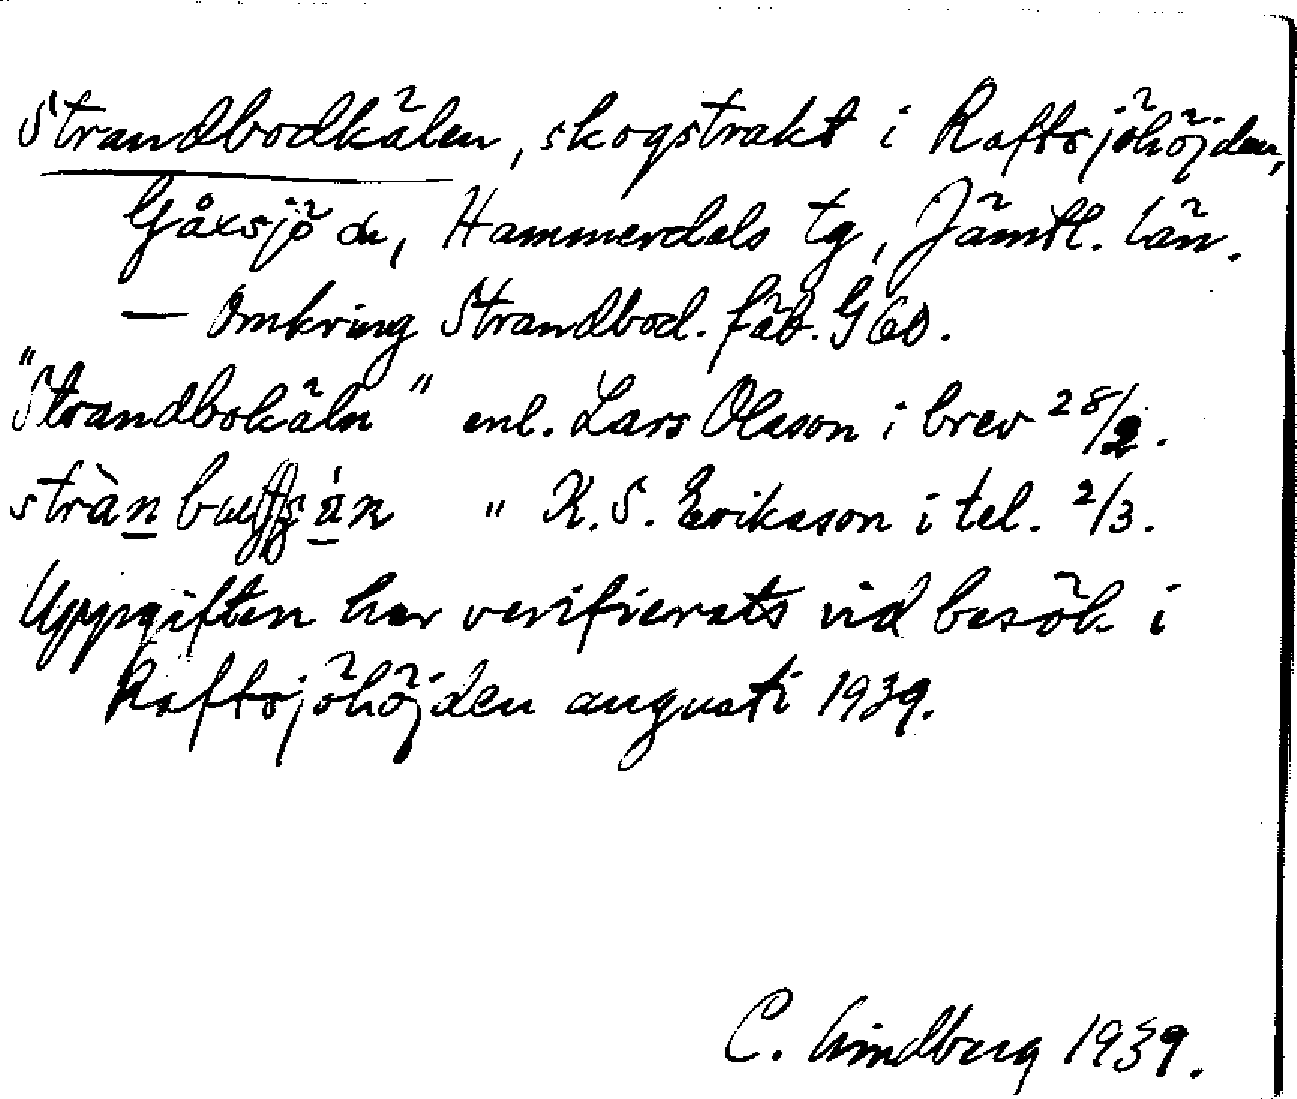 Strandbodkälen, skogstrakt i Raftsjöhöjden,
Gåxsjö sn, Hammerdals tg, Jämtl. län.
— Omkring Strandbod. fäb. G60.
"Strandbokäln" enl. Lars Olsson i brev 28/2.
" K. S. Eriksson i tel. 2/3.
Uppgiften har verifierats vid besök i
Raftsjöhöjden augusti 1939.
C. Lindberg 1939.